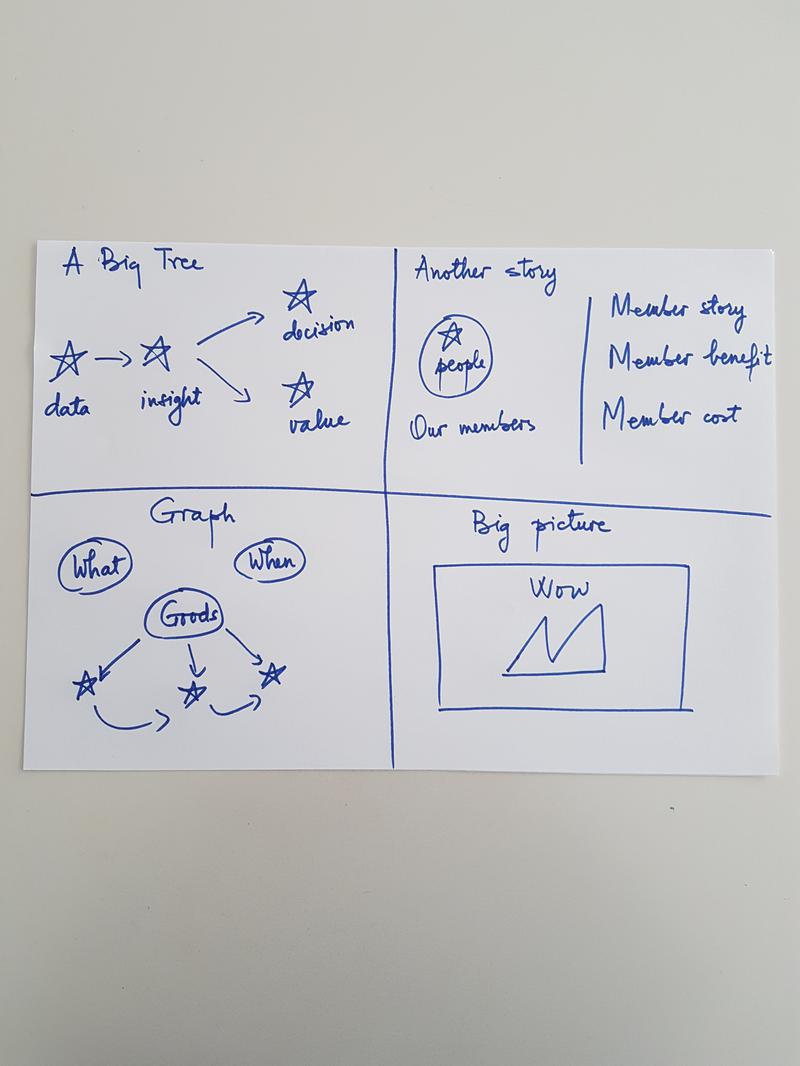 A Big Tree
decision
data
insight
value
Another story
people
Our members
Member story
Member benefit
Member cost
Graph
What
When
Goods
Big picture
Wow